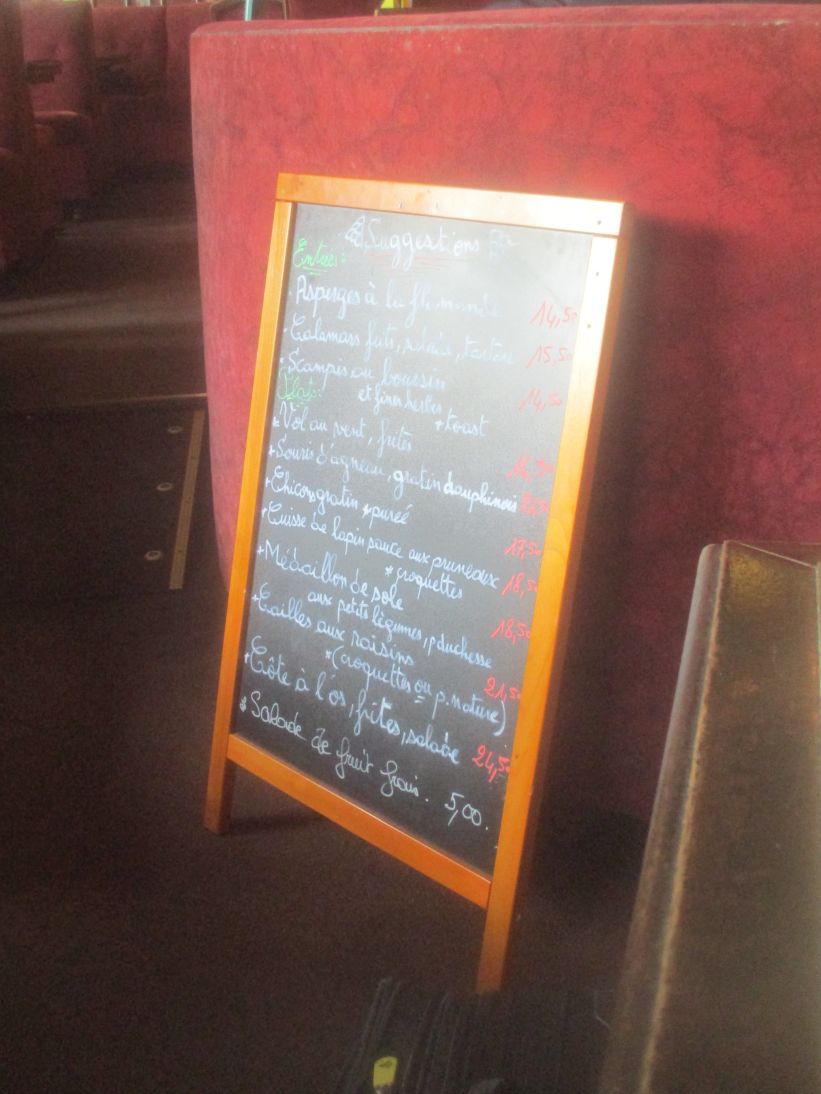 Suggestions
Entrées:
Asperges à la flamande 14,50
Calamars frits, salade, tartare 15,50
Scampis au boursin
et fines herbes 14,50
+ toast
Plats:
* Vol au vent, frites
* Souris d'agneau, gratin dauphinois
* Chicons gratin + purée 17,50
* Cuisse de lapin sauce aux pruneaux
* croquettes 18,50
* Médaillon de sole
aux petits légumes, p duchesse 18,50
* Cailles aux raisins
* (croquettes ou p. nature) 21,50
* Côte à l'os, frites, salade 24,50
* Salade de fruit frais. 5,00.